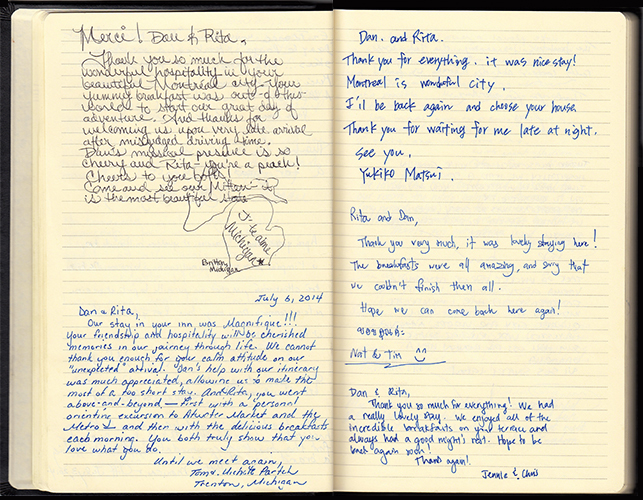 Merci! Dan & Rita,
Thank you so much for the
wonderful hospitality in your
beautiful Montreal city. Your
yummy breakfast was out of this
world to start our great day of
adventure. And thanks for
welcoming us upon very late arrival
after misjudged driving time.
Dan's musical presence is so
cheery and Rita - you're a peach!
Cheers to you both!
Come and see our Mitten - It
is the most beautiful state
Je t'aime
Michigan
Brittany
Michigan
July 6, 2014
Dan & Rita,
Our stay in your inn was Magnifique!!!
Your friendship and hospitality will be cherished
memories in our journey through life. We cannot
thank you enough for your calm attitude on our
"unexpected" arrival. Dan's help with our itinerary
was much appreciated, allowing us to make the
most of a too short stay. And Rita, you went
above-and-beyond - First with a personal
orienting excursion to Atwater Market and the
Metro - and then with the delicious breakfasts
each morning. You both truly show that you
love what you do.
Until we meet again,
Tom &
Trenton, Michigan
Dan. and Rita.
Thank you for everything. it was nice stay!
Montreal is wonderful city.
I'll be back again and choose your house.
Thank you for waiting for me late at night.
See you.
Yukiko Matsui.
Rita and Dan,
Thank you very much, it was lovely staying here!
The breakfasts were all amazing, and sorry that
we couldn't finish them all.
Hope we can come back here again!
Nat & Tim
Dan & Rita,
Thank you so much for everything! We had
a really lovely stay. We enjoyed all of the
incredible breakfasts on your terrace and
always had a good night's rest. Hope to be
back again soon!
Thanks again!
Jennie & Chris